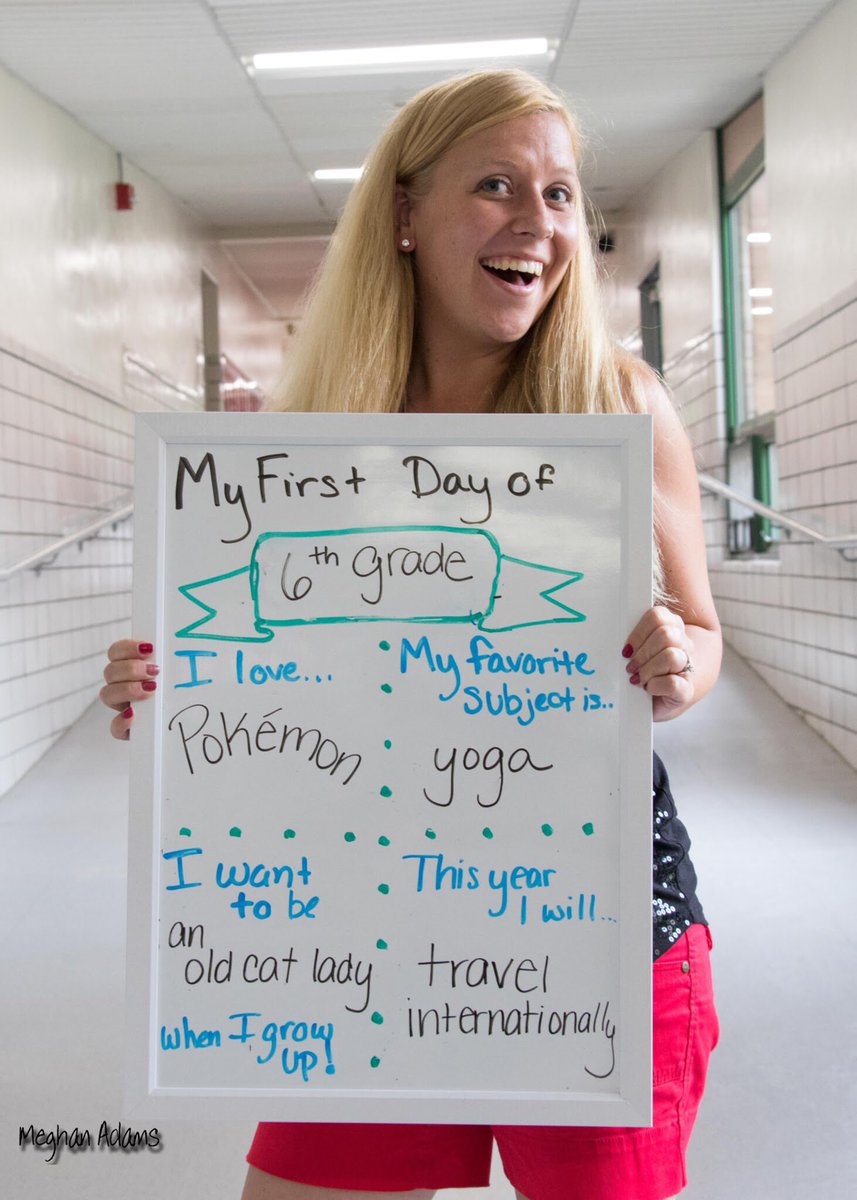 My First Day of
6th grade
I love...
Pokémon
My favorite
subject is..
yoga
I want
to be
an
old cat lady
when I grow
up!
This year
I will...
travel
internationally
Meghan Adams